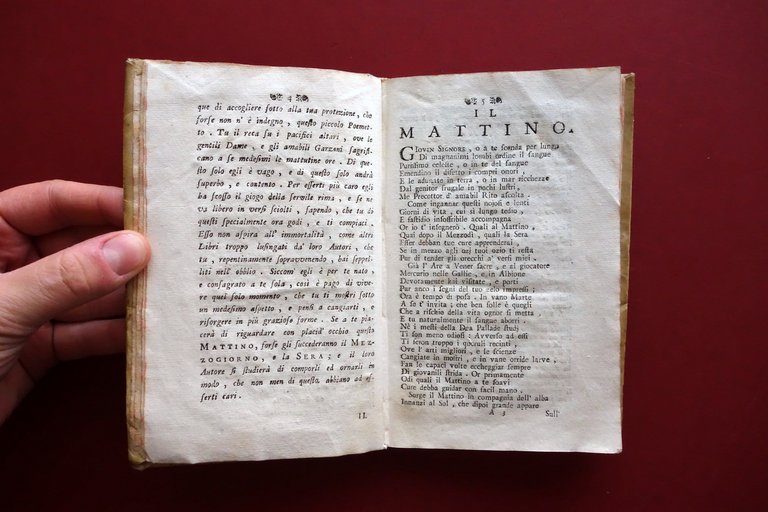 4
que di accogliere sotto alla tua protezione, che
forse non n' è indegno, questo piccolo Poemet-
to. Tu il reca su i pacifici altari, ove le
gentili Dame, e gli amabili Garzoni sagrifi-
cano a se medesimi le mattutine ore. Di que-
sto solo egli è vago, e di questo solo andrà
superbo, e contento. Per esserti più caro egli
ha scosso il giogo della servile rima, e se ne
va libero in versi sciolti, sapendo, che tu di
questi specialmente ora godi, e ti compiaci.
Esso non aspira all' immortalità, come altri
Libri troppo lusingati da' loro Autori, che
tu, repentinamente sopravvenendo, hai seppel-
liti nell' obblio. Siccom' egli è per te nato,
e consagrato a te sola, così è pago di vive-
re quel solo momento, che tu ti mostri sotto
un medesimo aspetto, e pensi a cangiarti, e
risorgere in più graziose forme. Se a te pia-
cerà di riguardare con placid' occhio questo
MATTINO, forse gli succederanno il MEZ-
ZOGIORNO, e la SERA; e il loro
Autore si studierà di comporli ed ornarli in
modo, che non men di questo abbiano ad es-
serti cari.
IL
5
IL
MATTINO.
GIOVIN SIGNORE, o a te scenda per lungo
Di magnanimi lombi ordine il sangue
Purissimo celeste, o in te del sangue
Emendino il difetto i compri onori,
E le adunate in terra, o in mar ricchezze
Dal genitor frugale in pochi lustri,
Me Precettor d' amabil Rito ascolta.
Come ingannar questi nojosi e lenti
Giorni di vita, cui sì lungo tedio,
E fastidio insoffribile accompagna
Or io t' insegnerò. Quali al Mattino,
Quai dopo il Mezzodì, quali la Sera
Esser debban tue cure apprenderai,
Se in mezzo agli ozj tuoi ozio ti resta
Pur di tender gli orecchi a' versi miei.
Già l' Are a Vener sacre, e al giocatore
Mercurio nelle Gallie, e in Albione
Devotamente hai visitate, e porti
Pur anco i segni del tuo zelo impressi:
Ora è tempo di posa. In vano Marte
A se t' invita; che ben folle è quegli
Che a rischio della vita onor si merca,
E tu naturalmente il sangue aborri.
Nè i mesti della Dea Pallade studj
Ti son meno odiosi: Avverso ad essi
Ti feron troppo i queruli recinti,
Ove l' arti migliori, e le scienze
Cangiate in mostri, e in vane orride larve,
Fan le capaci volte eccheggiar sempre
Di giovanili strida. Or primamente
Odi quali il Mattino a te soavi
Cure debba guidar con facil mano.
Sorge il Mattino in compagnia dell' alba
Innanzi al Sol, che dipoi grande appare
A 3
Sull'